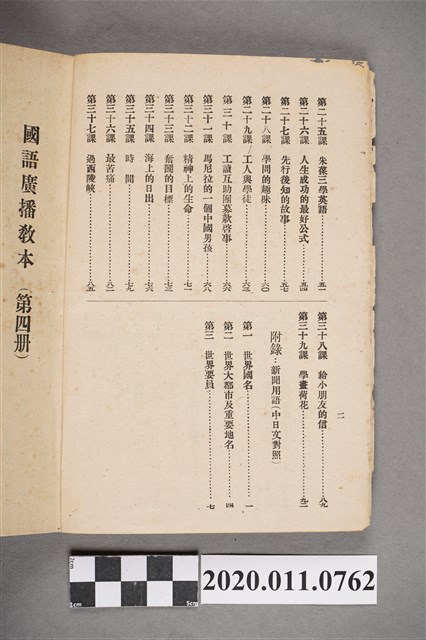 第二十五課 朱葆三學英語……………五一
第二十六課 人生成功的最好公式……………五四
第二十七課 先行後知的故事……………五七
第二十八課 學問的趣味……………六〇
第二十九課 工人與學徒……………六三
第三十課 工讀互助團募款啓事……………六六
第三十一課 馬尼拉的一個中國男孩……………六八
第三十二課 精神上的生命……………七一
第三十三課 奮鬭的目標……………七三
第三十四課 海上的日出……………七六
第三十五課 時間……………七九
第三十六課 最苦痛……………八二
第三十七課 過西陵峽……………八五
二
第三十八課 給小朋友的信……………八九
第三十九課 學畫荷花……………九二
附錄：新聞用語(中日文對照)
第一 世界國名……………一
第二 世界大都市及重要地名……………四
第三 世界要員……………七
國語廣播教本(第四册)
2cm
1cm
5cm
2020.011.0762